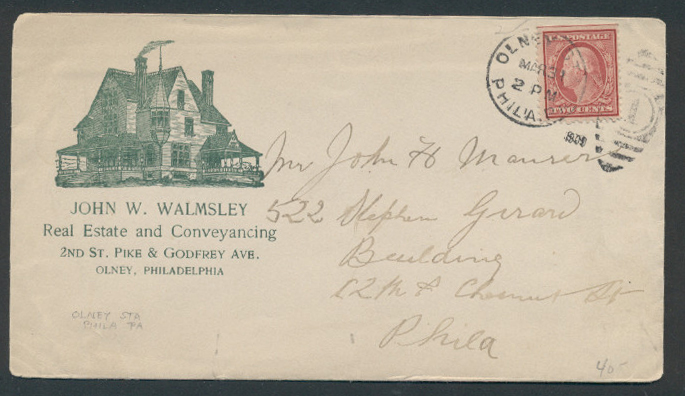 JOHN W. WALMSLEY
Real Estate and Conveyancing
2ND ST. PIKE & GODFREY AVE.
OLNEY, PHILADELPHIA
OLNEY STA
PHILA PA
OLNEY
MAR
2 PM
PHILA.
1909
U.S. POSTAGE
2 TWO CENTS 2
1
Mr John H Maurer
522 Stephen Girard
Building
12th & Chesnut St
Phila
40-